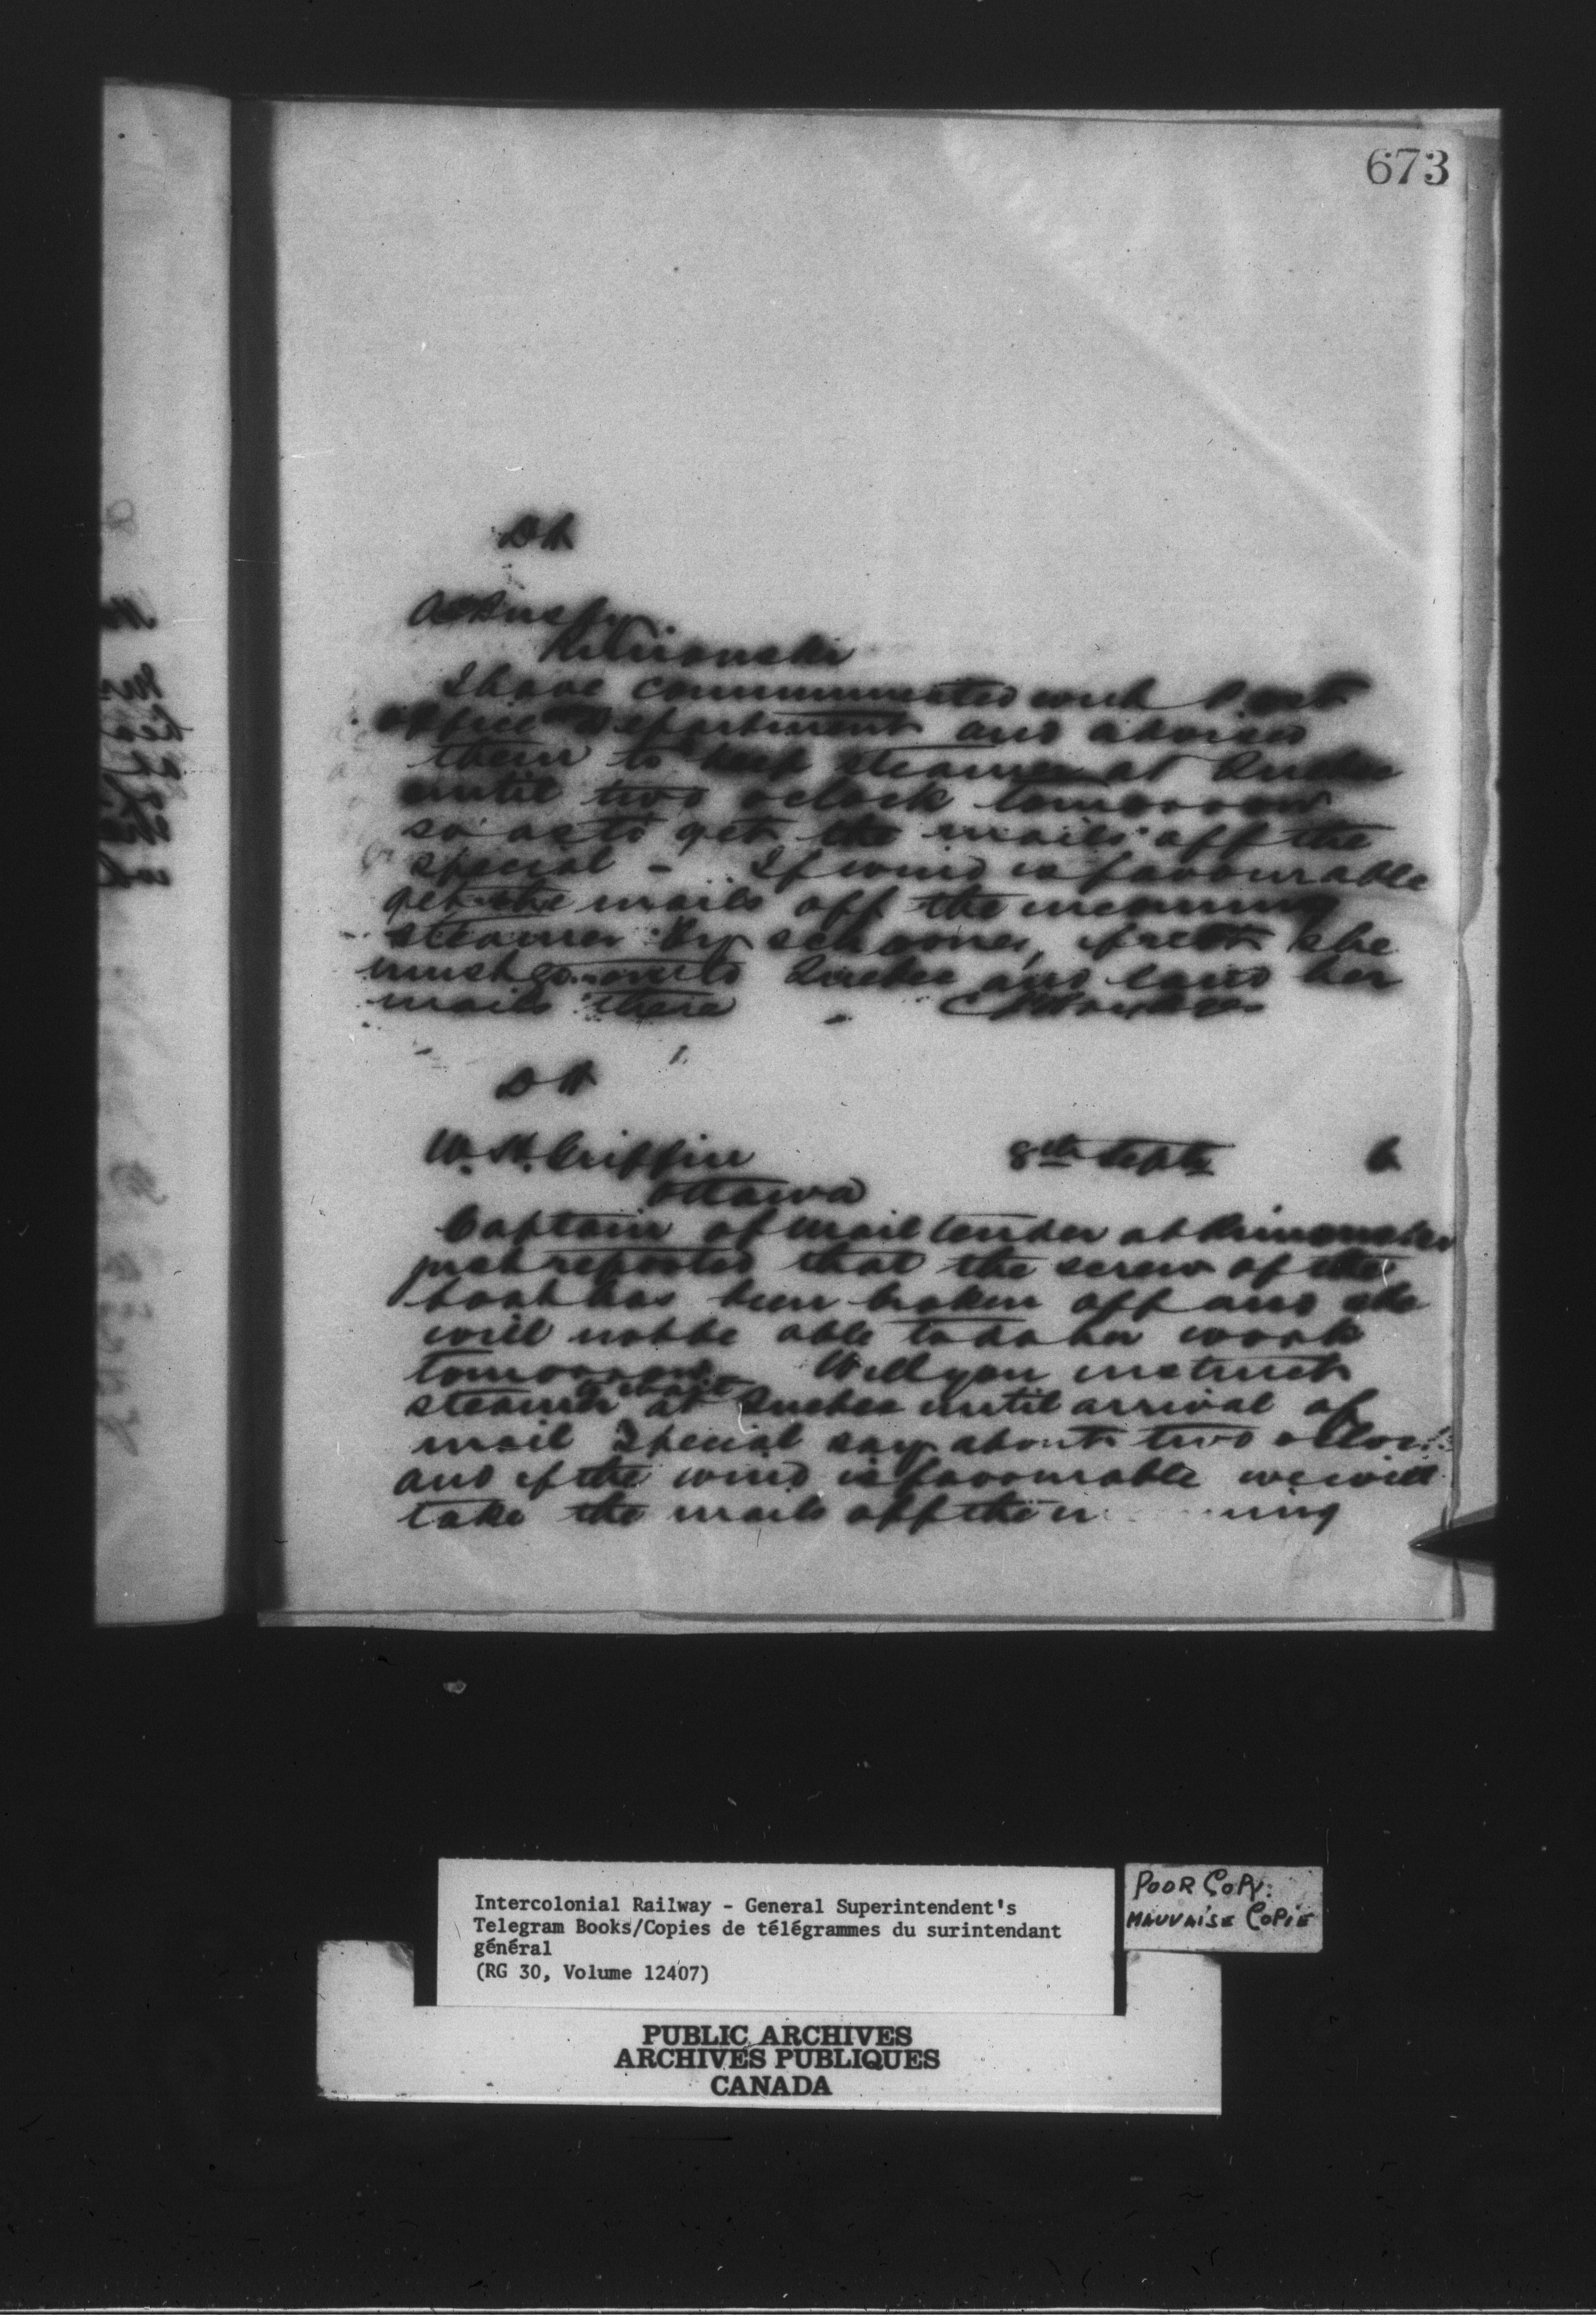 673
D H
A Busby
Rimouski
I have communicated with Post
Office Department and advised
them to keep steamer at Quebec
until two oclock tomorrow
so as to get the mails off the
special - If wind is favourable
get the mails off the incoming
steamer by schooner, if not she
must go on to Quebec and land her
mails there
D H
W. H. Griffin 8th Septr 6
Ottawa
Captain of Mail tender at Rimouski
just reported that the screw of the
boat has been broken off and she
will not be able to do her work
tomorrow Will you instruct
steamer to wait at Quebec until arrival of
mail Special say about two oclock
and if the wind is favourable we will
take the mails off the
Intercolonial Railway - General Superintendent's
Telegram Books/Copies de télégrammes du surintendant
général
(RG 30, Volume 12407)
POOR COPY:
MAUVAISE COPIE
PUBLIC ARCHIVES
ARCHIVES PUBLIQUES
CANADA